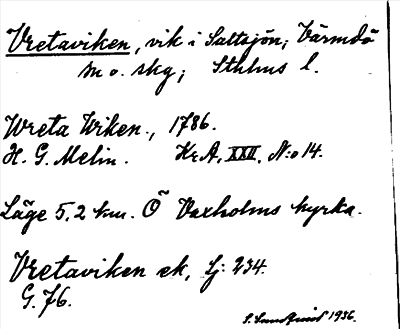 Vretaviken, vik i Saltsjön; Värmdö
m o. skg; Sthlms l.
Wreta Wiken., 1786.
H. G. Melin. Kr.A. XXII. N:o 14.
Läge 5,2 km. Ö Vaxholms kyrka.
Vretaviken ek, Lj: 234.
G. 76.
1936.